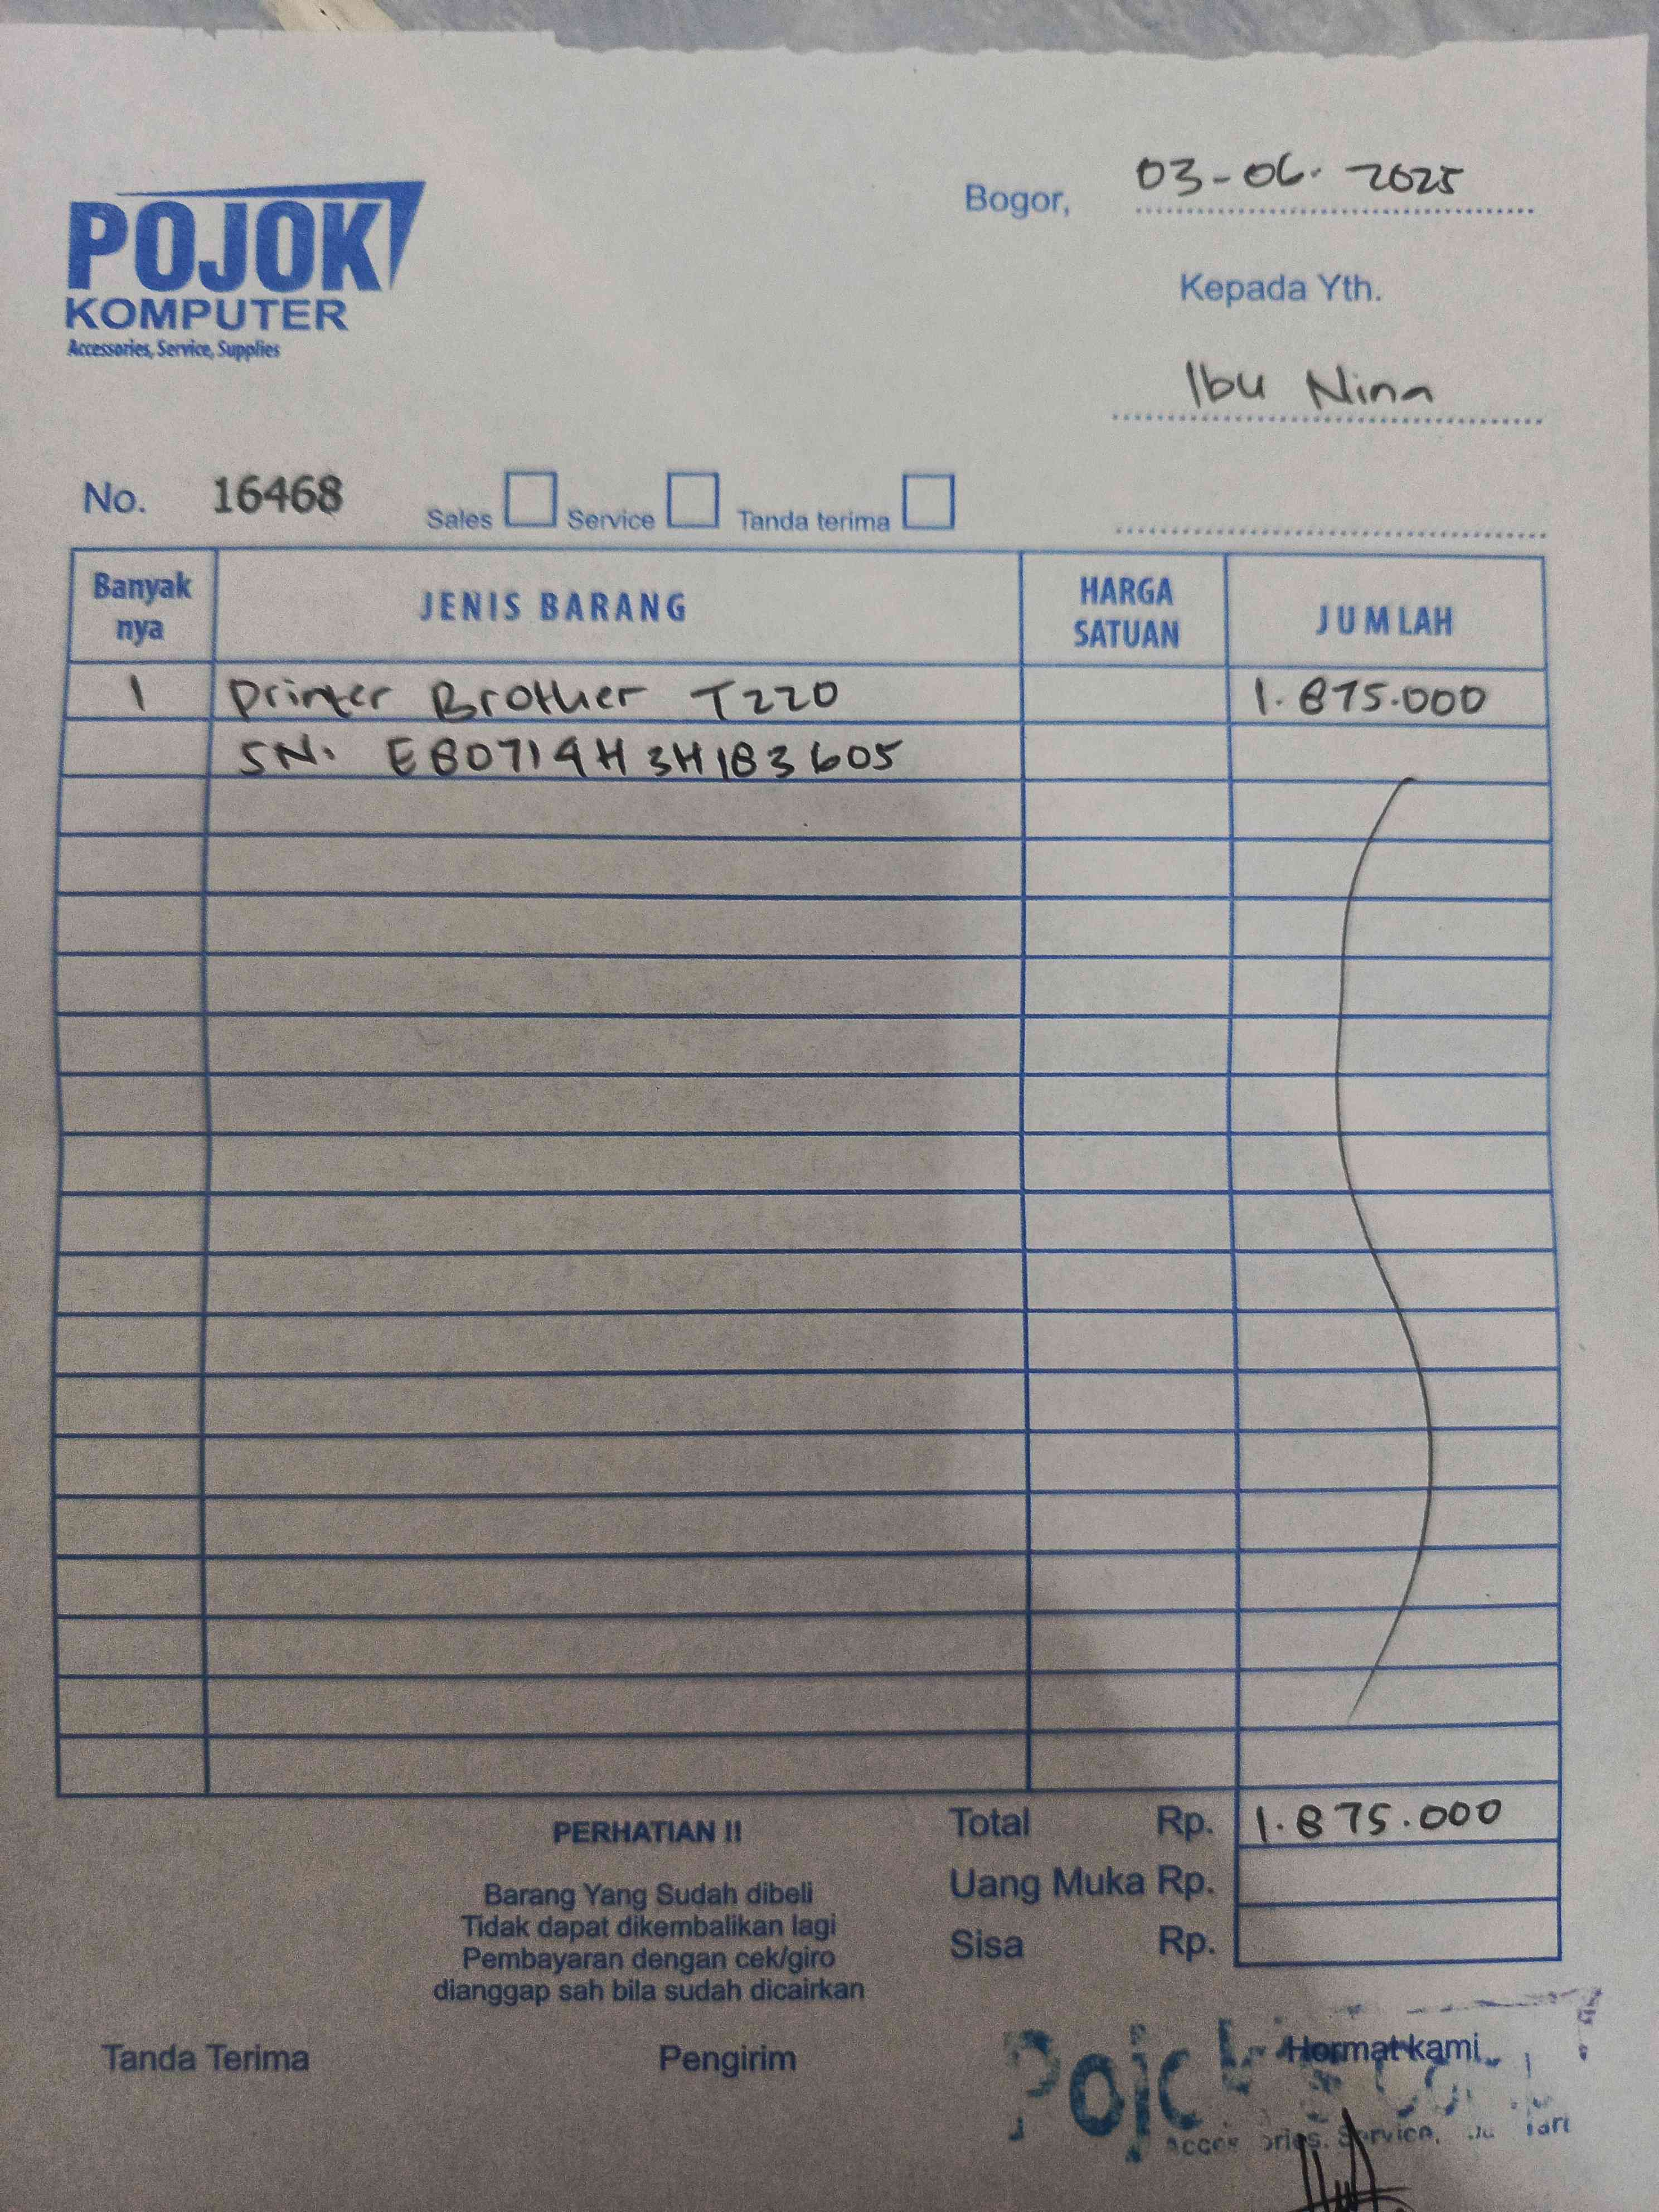 POJOK
KOMPUTER
Accessories, Service, Supplies
Bogor, 03-06-2025
Kepada Yth.
Ibu Nina
No. 16468 Sales Service Tanda terima
Banyak nya JENIS BARANG HARGA SATUAN JUMLAH
1 Printer Brother T220 1.875.000
SN. E80714H3H183605
PERHATIAN !!
Barang Yang Sudah dibeli
Tidak dapat dikembalikan lagi
Pembayaran dengan cek/giro
dianggap sah bila sudah dicairkan
Total Rp. 1.875.000
Uang Muka Rp.
Sisa Rp.
Tanda Terima Pengirim Hormat kami
Pojok
Accessories, Service,